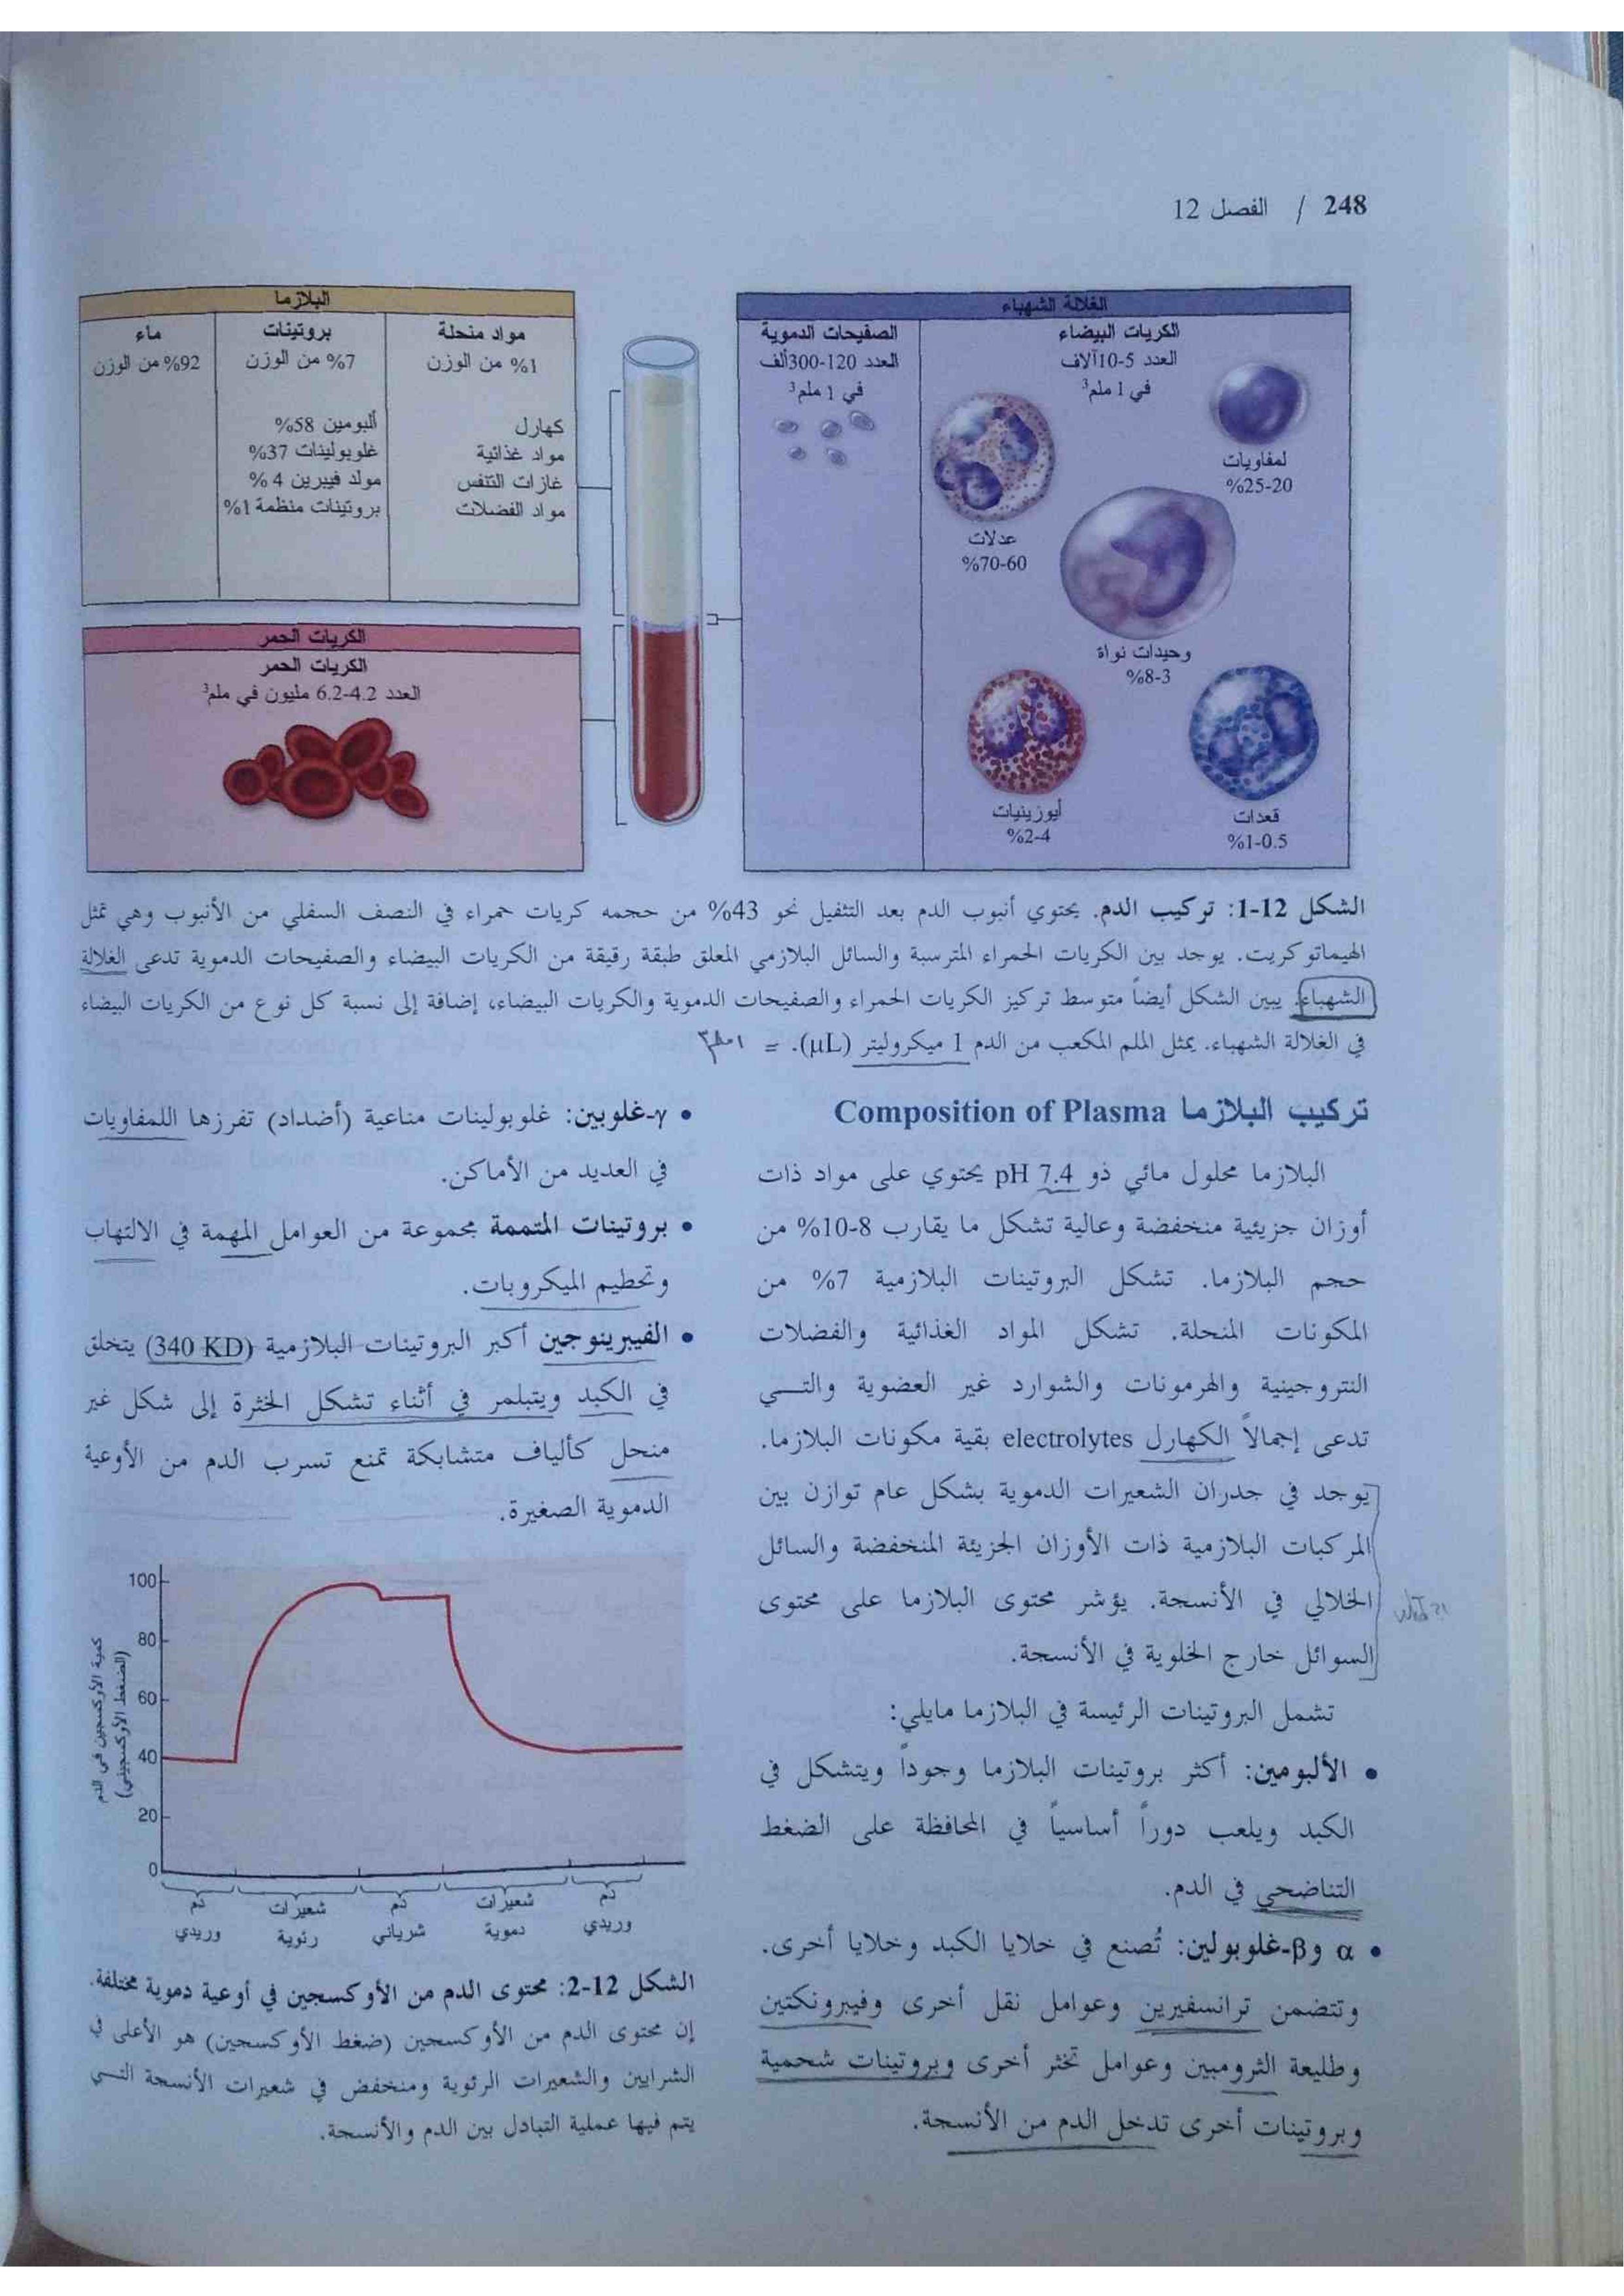 248 / الفصل 12
الغلالة الشهباء
الكريات البيضاء
العدد 5-10آلاف
في 1 ملم³
لمفاويات
%25-20
عدلات
%70-60
وحيدات نواة
%8-3
أيوزينيات
%2-4
قعدات
%1-0.5
الصفيحات الدموية
العدد 120-300ألف
في 1 ملم³
البلازما
مواد منحلة
1% من الوزن
كهارل
مواد غذائية
غازات التنفس
مواد الفضلات
بروتينات
7% من الوزن
ألبومين 58%
غلوبولينات 37%
مولد فيبرين 4 %
بروتينات منظمة 1%
ماء
92% من الوزن
الكريات الحمر
الكريات الحمر
العدد 4.2-6.2 مليون في ملم³
الشكل 12-1: تركيب الدم. يحتوي أنبوب الدم بعد التثفيل نحو 43% من حجمه كريات حمراء في النصف السفلي من الأنبوب وهي تمثل
الهيماتوكريت. يوجد بين الكريات الحمراء المترسبة والسائل البلازمي المعلق طبقة رقيقة من الكريات البيضاء والصفيحات الدموية تدعى الغلالة
الشهباء. يبين الشكل أيضاً متوسط تركيز الكريات الحمراء والصفيحات الدموية والكريات البيضاء، إضافة إلى نسبة كل نوع من الكريات البيضاء
في الغلالة الشهباء. يمثل الملم المكعب من الدم 1 ميكروليتر (µL). = ١ملم٣
تركيب البلازما Composition of Plasma
البلازما محلول مائي ذو pH 7.4 يحتوي على مواد ذات
أوزان جزيئية منخفضة وعالية تشكل ما يقارب 8-10% من
حجم البلازما. تشكل البروتينات البلازمية 7% من
المكونات المنحلة. تشكل المواد الغذائية والفضلات
النتروجينية والهرمونات والشوارد غير العضوية والتـــي
تدعى إجمالاً الكهارل electrolytes بقية مكونات البلازما.
يوجد في جدران الشعيرات الدموية بشكل عام توازن بين
المركبات البلازمية ذات الأوزان الجزيئة المنخفضة والسائل
الخلالي في الأنسجة. يؤشر محتوى البلازما على محتوى
السوائل خارج الخلوية في الأنسجة.
تشمل البروتينات الرئيسة في البلازما مايلي:
• الألبومين: أكثر بروتينات البلازما وجوداً ويتشكل في
الكبد ويلعب دوراً أساسياً في المحافظة على الضغط
التناضحي في الدم.
• α وβ-غلوبولين: تُصنع في خلايا الكبد وخلايا أخرى.
وتتضمن ترانسفيرين وعوامل نقل أخرى وفيبرونكتين
وطليعة الثرومبين وعوامل تخثر أخرى وبروتينات شحمية
وبروتينات أخرى تدخل الدم من الأنسجة.
• γ-غلوبين: غلوبولينات مناعية (أضداد) تفرزها اللمفاويات
في العديد من الأماكن.
• بروتينات المتممة مجموعة من العوامل المهمة في الالتهاب
وتحطيم الميكروبات.
• الفيبرينوجين أكبر البروتينات البلازمية (340 KD) يتخلق
في الكبد ويتبلمر في أثناء تشكل الخثرة إلى شكل غير
منحل كألياف متشابكة تمنع تسرب الدم من الأوعية
الدموية الصغيرة.
كمية الأوكسجين في الدم
(الضغط الأوكسجيني)
100
80
60
40
20
0
دم وريدي
شعيرات رئوية
دم شرياني
شعيرات دموية
دم وريدي
الشكل 12-2: محتوى الدم من الأوكسجين في أوعية دموية مختلفة.
إن محتوى الدم من الأوكسجين (ضغط الأوكسجين) هو الأعلى في
الشرايين والشعيرات الرئوية ومنخفض في شعيرات الأنسجة التـــي
يتم فيها عملية التبادل بين الدم والأنسجة.